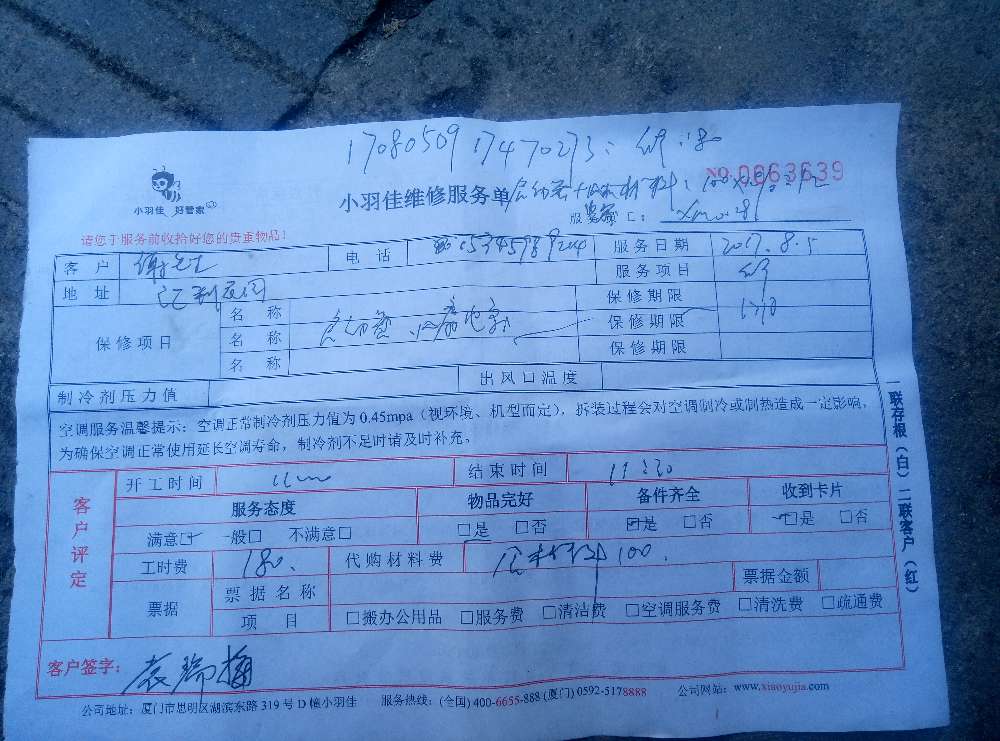 NO.0663639
小羽佳 好管家
小羽佳维修服务单
请您于服务前收拾好您的贵重物品！
客户 电话 服务日期 2017.8.5
地址 服务项目
保修项目
名称 保修期限
名称 保修期限
名称 保修期限
制冷剂压力值 出风口温度
空调服务温馨提示：空调正常制冷剂压力值为 0.45mpa（视环境、机型而定），拆装过程会对空调制冷或制热造成一定影响，
为确保空调正常使用延长空调寿命，制冷剂不足时请及时补充。
客户评定
开工时间 结束时间
服务态度 物品完好 备件齐全 收到卡片
满意□ 一般□ 不满意□ □是 □否 □是 □否 □是 □否
工时费 180. 代购材料费 100.
票据 票据名称 票据金额
项目 □搬办公用品 □服务费 □清洁费 □空调服务费 □清洗费 □疏通费
客户签字： 袁瑞梅
公司地址：厦门市思明区湖滨东路 319 号 D 幢小羽佳 服务热线：(全国) 400-6655-888 (厦门) 0592-5178888 公司网站：www.xiaoyujia.com
一联存根（白）二联客户（红）